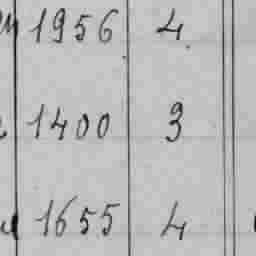 1956 4
1400 3
1655 4